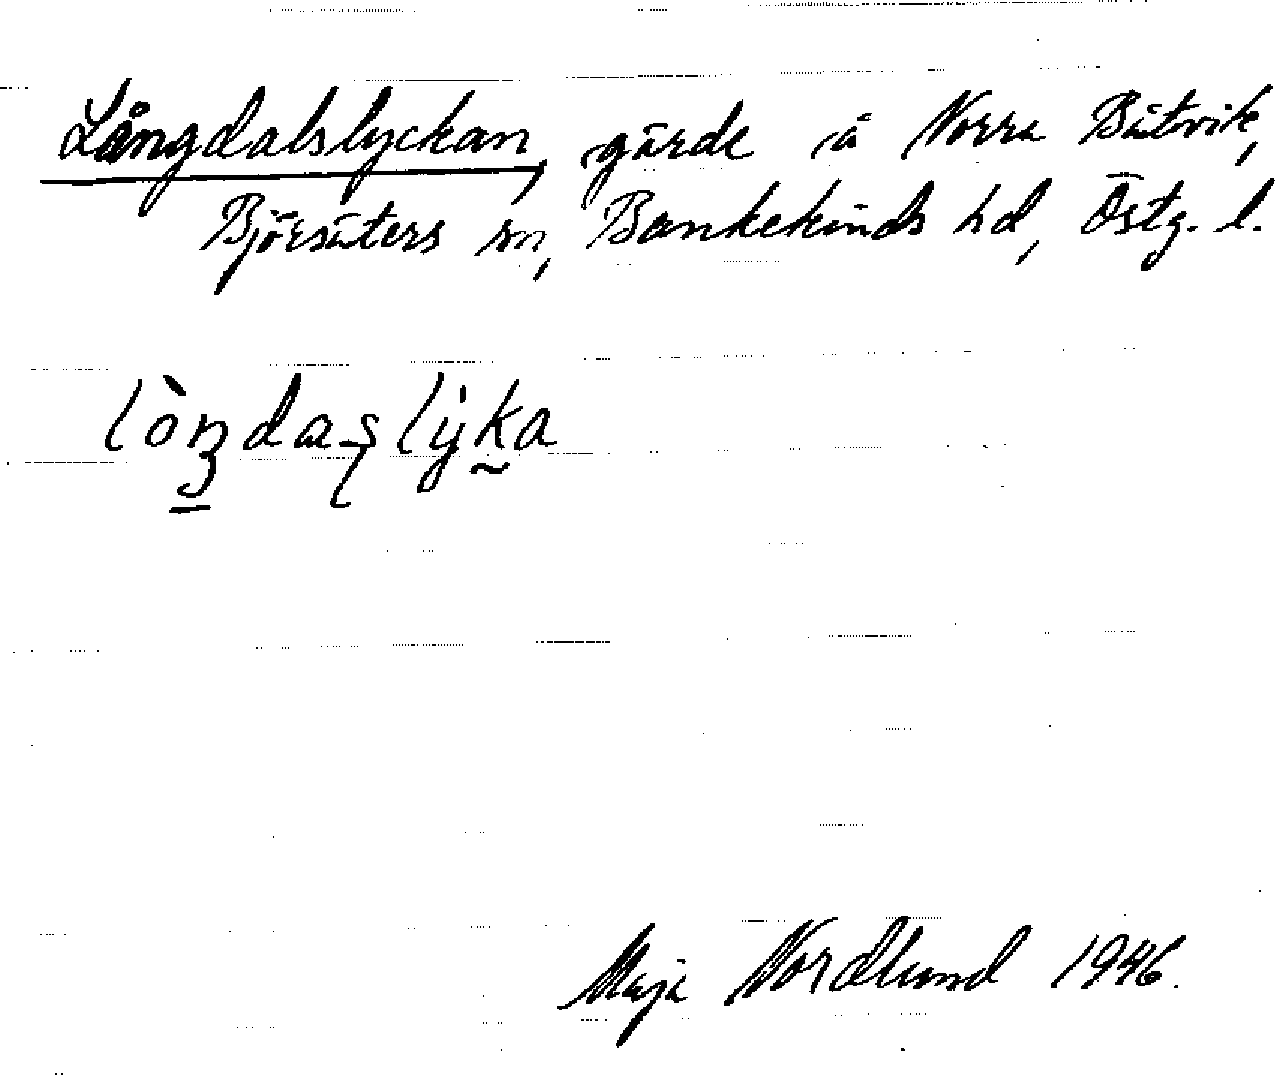 Långdalslyckan, gärde å Norra Båtvik,
Björsäters sn, Bankekinds hd, Östg. l.
lòŋdaslýka
Maja Nordlund 1946.